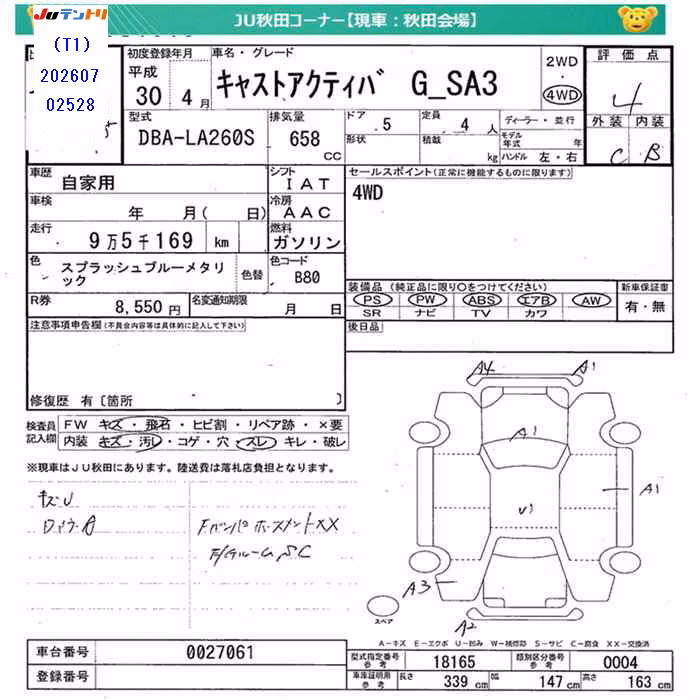 JUテントリ
JU秋田コーナー【現車：秋田会場】
(T1)
202607
02528
初度登録年月
平成
30 4月
車名・グレード
キャストアクティバ G_SA3
2WD
・
4WD
評価点
4
外装 内装
C B
型式
DBA-LA260S
排気量
658
CC
ドア
5
形状
定員
4 人
積載
kg
ディーラー・並行
モデル年式 年
ハンドル 左・右
車歴
自家用
シフト
IAT
車検
年 月( 日)
冷房
AAC
走行
9万5千169 km
燃料
ガソリン
色
スプラッシュブルーメタリック
色替
色コード
B80
R券
8,550円
名変通知期限
月 日
セールスポイント(正常に機能するものに限ります)
4WD
装備品(純正品に限り○をつけてください)
PS PW ABS エアB AW
SR ナビ TV カワ
新車保証書
有・無
後日品
注意事項申告欄(不具合内容等は具体的に記入して下さい)
修復歴 有〔箇所 〕
検査員記入欄
FW キズ・飛石・ヒビ割・リペア跡・×要
内装 キズ・汚レ・コゲ・穴・スレ・キレ・破レ
※現車はJU秋田にあります。陸送費は落札店負担となります。
キズ・U
FバンパホースメントXX
A4 A1
A1
U1
A1
A3
A2
スペア
A－キズ E－エクボ U－凹み W－補修跡 S－サビ C－腐食 XX－交換済
車台番号
0027061
登録番号
型式指定番号
参考
18165
類別区分番号
参考
0004
車庫証明用
参考
長さ
339 cm
幅
147 cm
高さ
163 cm